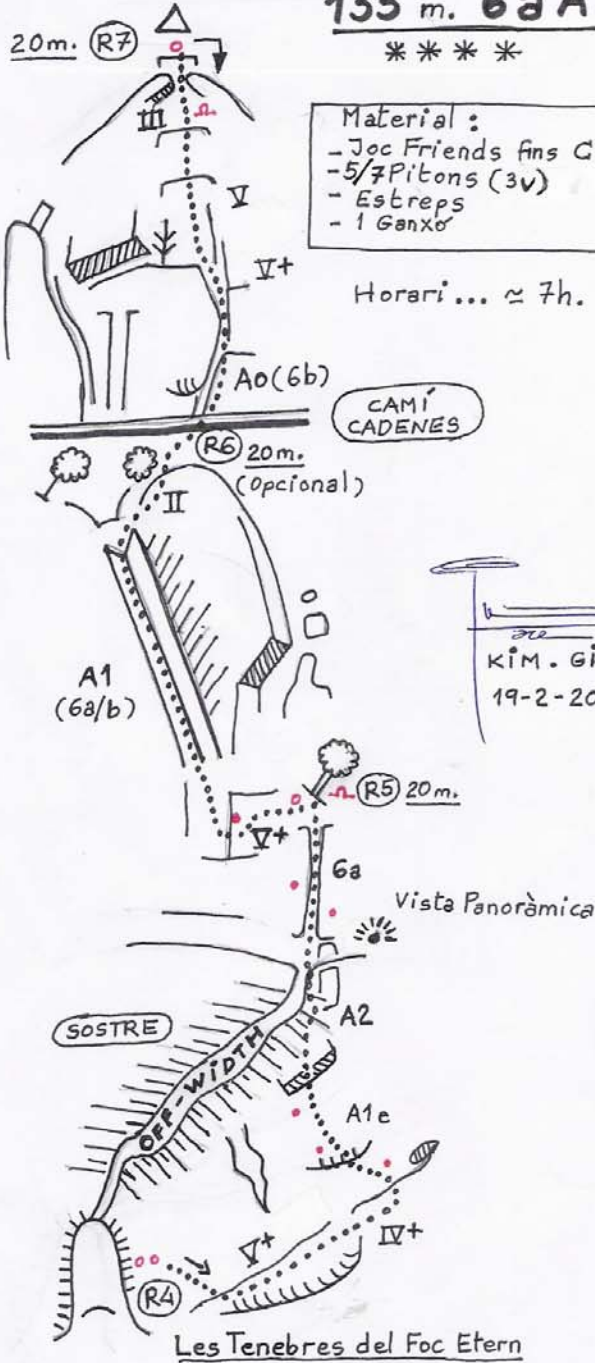 155 m. 6a A
20m. R7
* * * *
III
Material :
- Joc Friends fins C
- 5/7 Pitons (3v)
- Estreps
- 1 Ganxo
V
V+
Horari ... ≃ 7h.
A0 (6b)
CAMÍ
CADENES
R6 20m.
(Opcional)
II
A1
(6a/b)
KIM. GI
19-2-20
R5 20m.
V+
6a
Vista Panoràmica
A2
SOSTRE
OFF-WIDTH
A1e
V+
IV+
R4
Les Tenebres del Foc Etern